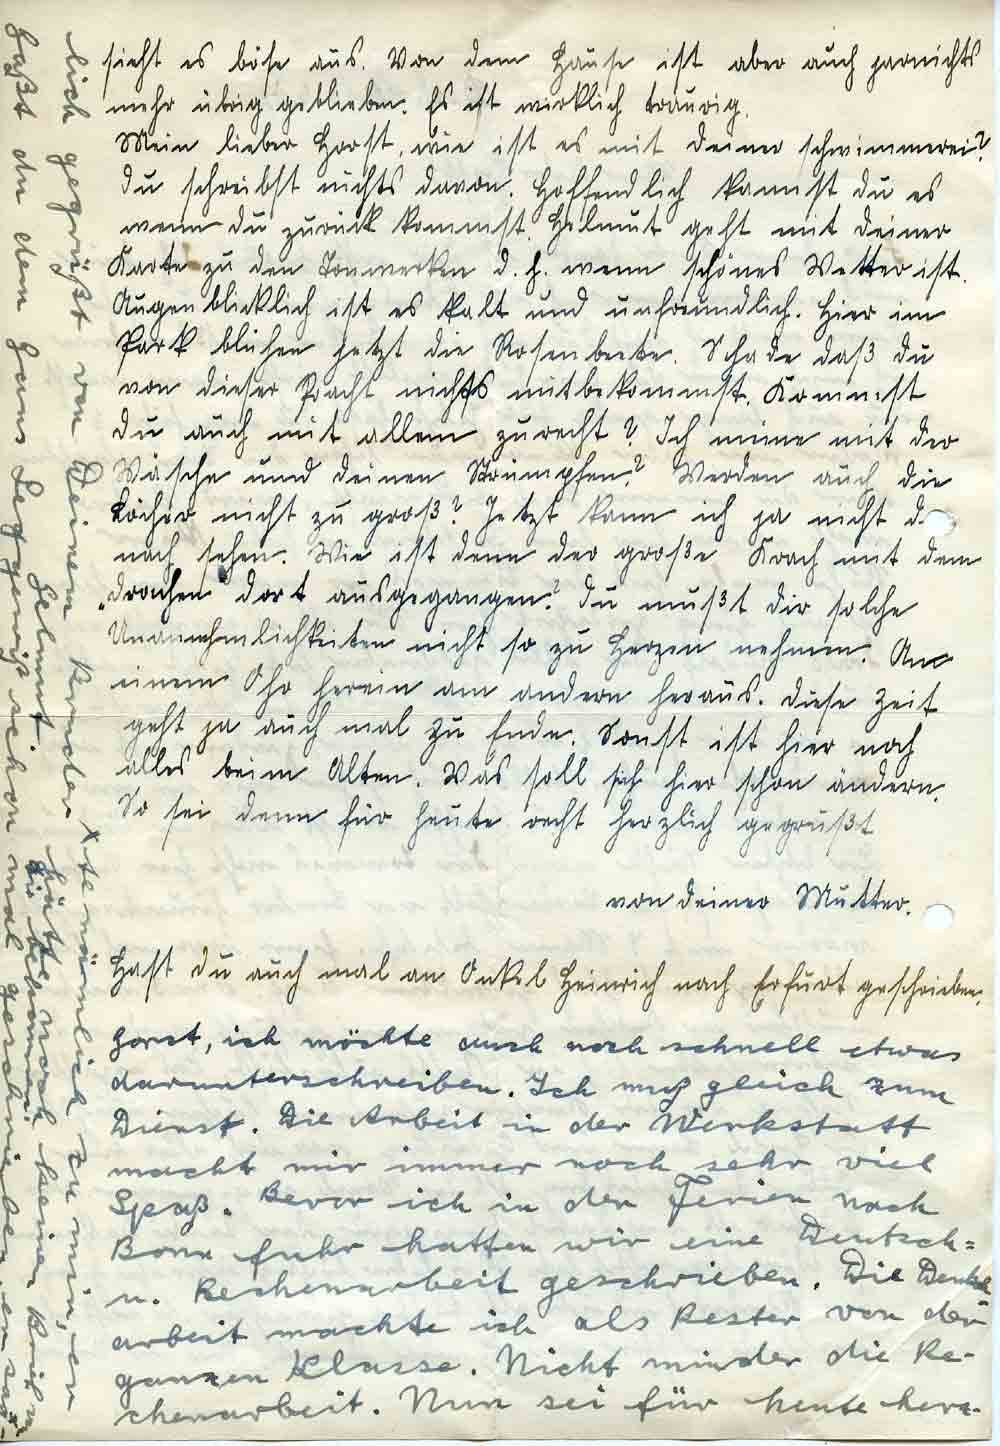 sieht es böse aus. Von dem Hause ist aber auch garnichts
mehr übrig geblieben. Es ist wirklich traurig.
Mein lieber Horst, wie ist es mit deiner schwimmerei?
du schreibst nichts davon. Hoffendlich kannst du es
wenn du zurück kommst. Helmut geht mit deiner
Karte zu den Tonwerken d. h. wenn schönes Wetter ist.
Augenblicklich ist es kalt und unfreundlich. Hier im
Park blühen jetzt die Rosenbeete. Schade daß du
von dieser Pracht nichts mitbekommst. Kommst
du auch mit allem zurecht? Ich meine mit der
Wäsche und deinen Strümpfen? Werden auch die
Löcher nicht zu groß? Jetzt kann ich ja nicht
nach sehen. Wie ist denn der große Krach mit dem
„drachen" dort ausgegangen? du mußt dir solche
Unannehmlichkeiten nicht so zu Herzen nehmen. Am
einem Ohr herein am andern heraus. diese Zeit
geht ja auch mal zu Ende. Sonst ist hier noch
alles beim Alten. Was soll sich hier schon ändern.
So sei denn für heute recht herzlich gegrüßt
von deiner Mutter.
Hast du auch mal an Onkel Heinrich nach Erfurt geschrieben.
Horst, ich möchte auch noch schnell etwas
darunterschreiben. Ich muß gleich zum
Dienst. Die Arbeit in der Werkstatt
macht mir immer noch sehr viel
Spaß. Bevor ich in den Ferien nach
Bonn fuhr hatten wir eine Deutsch=
u. Rechenarbeit geschrieben. Die
arbeit machte ich als Bester von der
ganzen Klasse. Nicht minder die Re-
chenarbeit. Nun sei für heute herz-
lich gegrüßt von Deinem Bruder
Helmut
Haßt du dem Hans gewiß schon mal geschrieben er sag-
te nämlich zu mir, er
hätte noch keinen Brief v.
dir bekommen.